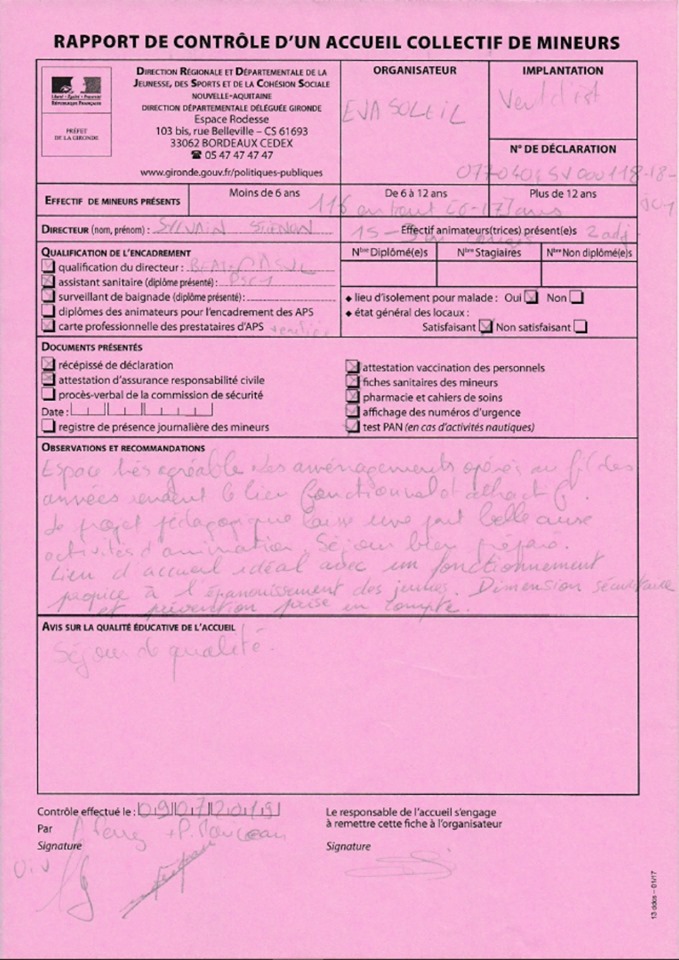 RAPPORT DE CONTRÔLE D'UN ACCUEIL COLLECTIF DE MINEURS
Liberté • Égalité • Fraternité
RÉPUBLIQUE FRANÇAISE
PRÉFET
DE LA GIRONDE
DIRECTION RÉGIONALE ET DÉPARTEMENTALE DE LA
JEUNESSE, DES SPORTS ET DE LA COHÉSION SOCIALE
NOUVELLE-AQUITAINE
DIRECTION DÉPARTEMENTALE DÉLÉGUÉE GIRONDE
Espace Rodesse
103 bis, rue Belleville – CS 61693
33062 BORDEAUX CEDEX
☎ 05 47 47 47 47
www.gironde.gouv.fr/politiques-publiques
ORGANISATEUR
EVASOLEIL
IMPLANTATION
Vent d'est
N° DE DÉCLARATION
EFFECTIF DE MINEURS PRÉSENTS
Moins de 6 ans
De 6 à 12 ans
Plus de 12 ans
116 en tout (6-17) ans
DIRECTEUR (nom, prénom) : SYLVAIN
Effectif animateurs(trices) présent(e)s
15 2 adj
QUALIFICATION DE L'ENCADREMENT
qualification du directeur :
assistant sanitaire (diplôme présenté) : PSC1
surveillant de baignade (diplôme présenté) :
diplômes des animateurs pour l'encadrement des APS
carte professionnelle des prestataires d'APS
Nbre Diplômé(e)s
Nbre Stagiaires
Nbre Non diplômé(e)s
lieu d'isolement pour malade : Oui Non
état général des locaux :
Satisfaisant Non satisfaisant
DOCUMENTS PRÉSENTÉS
récépissé de déclaration
attestation d'assurance responsabilité civile
procès-verbal de la commission de sécurité
Date :
registre de présence journalière des mineurs
attestation vaccination des personnels
fiches sanitaires des mineurs
pharmacie et cahiers de soins
affichage des numéros d'urgence
test PAN (en cas d'activités nautiques)
OBSERVATIONS ET RECOMMANDATIONS
Espace très agréable des aménagements opérés au fil des
années rendent le lieu fonctionnel et attractif.
Le projet pédagogique laisse une part belle aux
activités d'animation. Séjour bien préparé.
Lieu d'accueil idéal avec un fonctionnement
propice à l'épanouissement des jeunes. Dimension sécuritaire
et prévention prise en compte.
AVIS SUR LA QUALITÉ ÉDUCATIVE DE L'ACCUEIL
Séjour de qualité.
Contrôle effectué le : 09072019
Par
Signature
Le responsable de l'accueil s'engage
à remettre cette fiche à l'organisateur
Signature
13 ddcs – 01/17